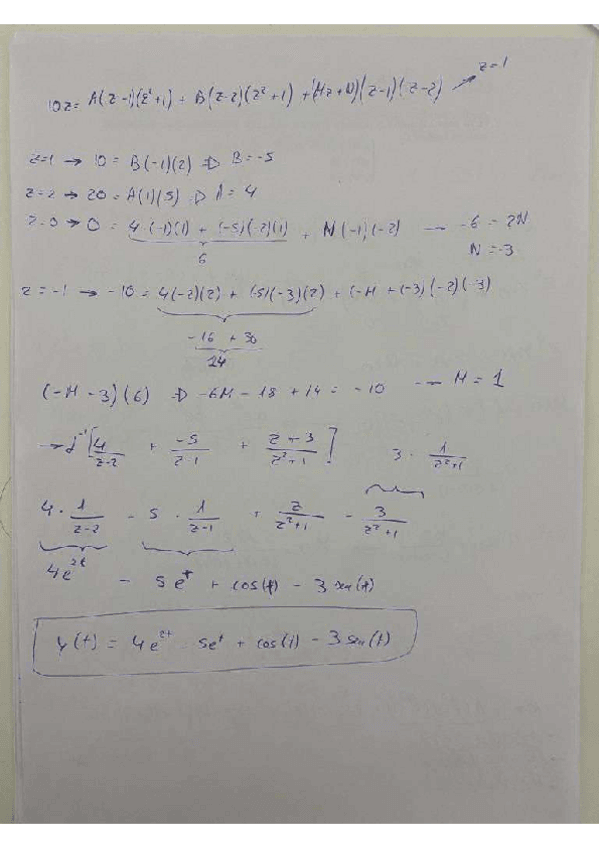 10z = A(z-1)(z²+1) + B(z-2)(z²+1) + (Mz+N)(z-1)(z-2) → z=1
z=1 → 10 = B(-1)(2) ⇒ B = -5
z=2 → 20 = A(1)(5) ⇒ A = 4
z=0 → 0 = 4·(-1)(1) + (-5)(-2)(1) + N(-1)(-2) → -6 = 2N
6
N = -3
z = -1 → -10 = 4(-2)(2) + (-5)(-3)(2) + (-M + (-3)(-2)(-3)
-16 + 30
14
(-M - 3)(6) ⇒ -6M - 18 + 14 = -10 → M = 1
→ L⁻¹[4/(z-2) + -5/(z-1) + (z-3)/(z²+1)] 3 · 1/(z²+1)
4 · 1/(z-2) - 5 · 1/(z-1) + z/(z²+1) - 3/(z²+1)
4e^2t - 5e^t + cos(t) - 3 sen(t)
y(t) = 4e^2t - 5e^t + cos(t) - 3 sen(t)